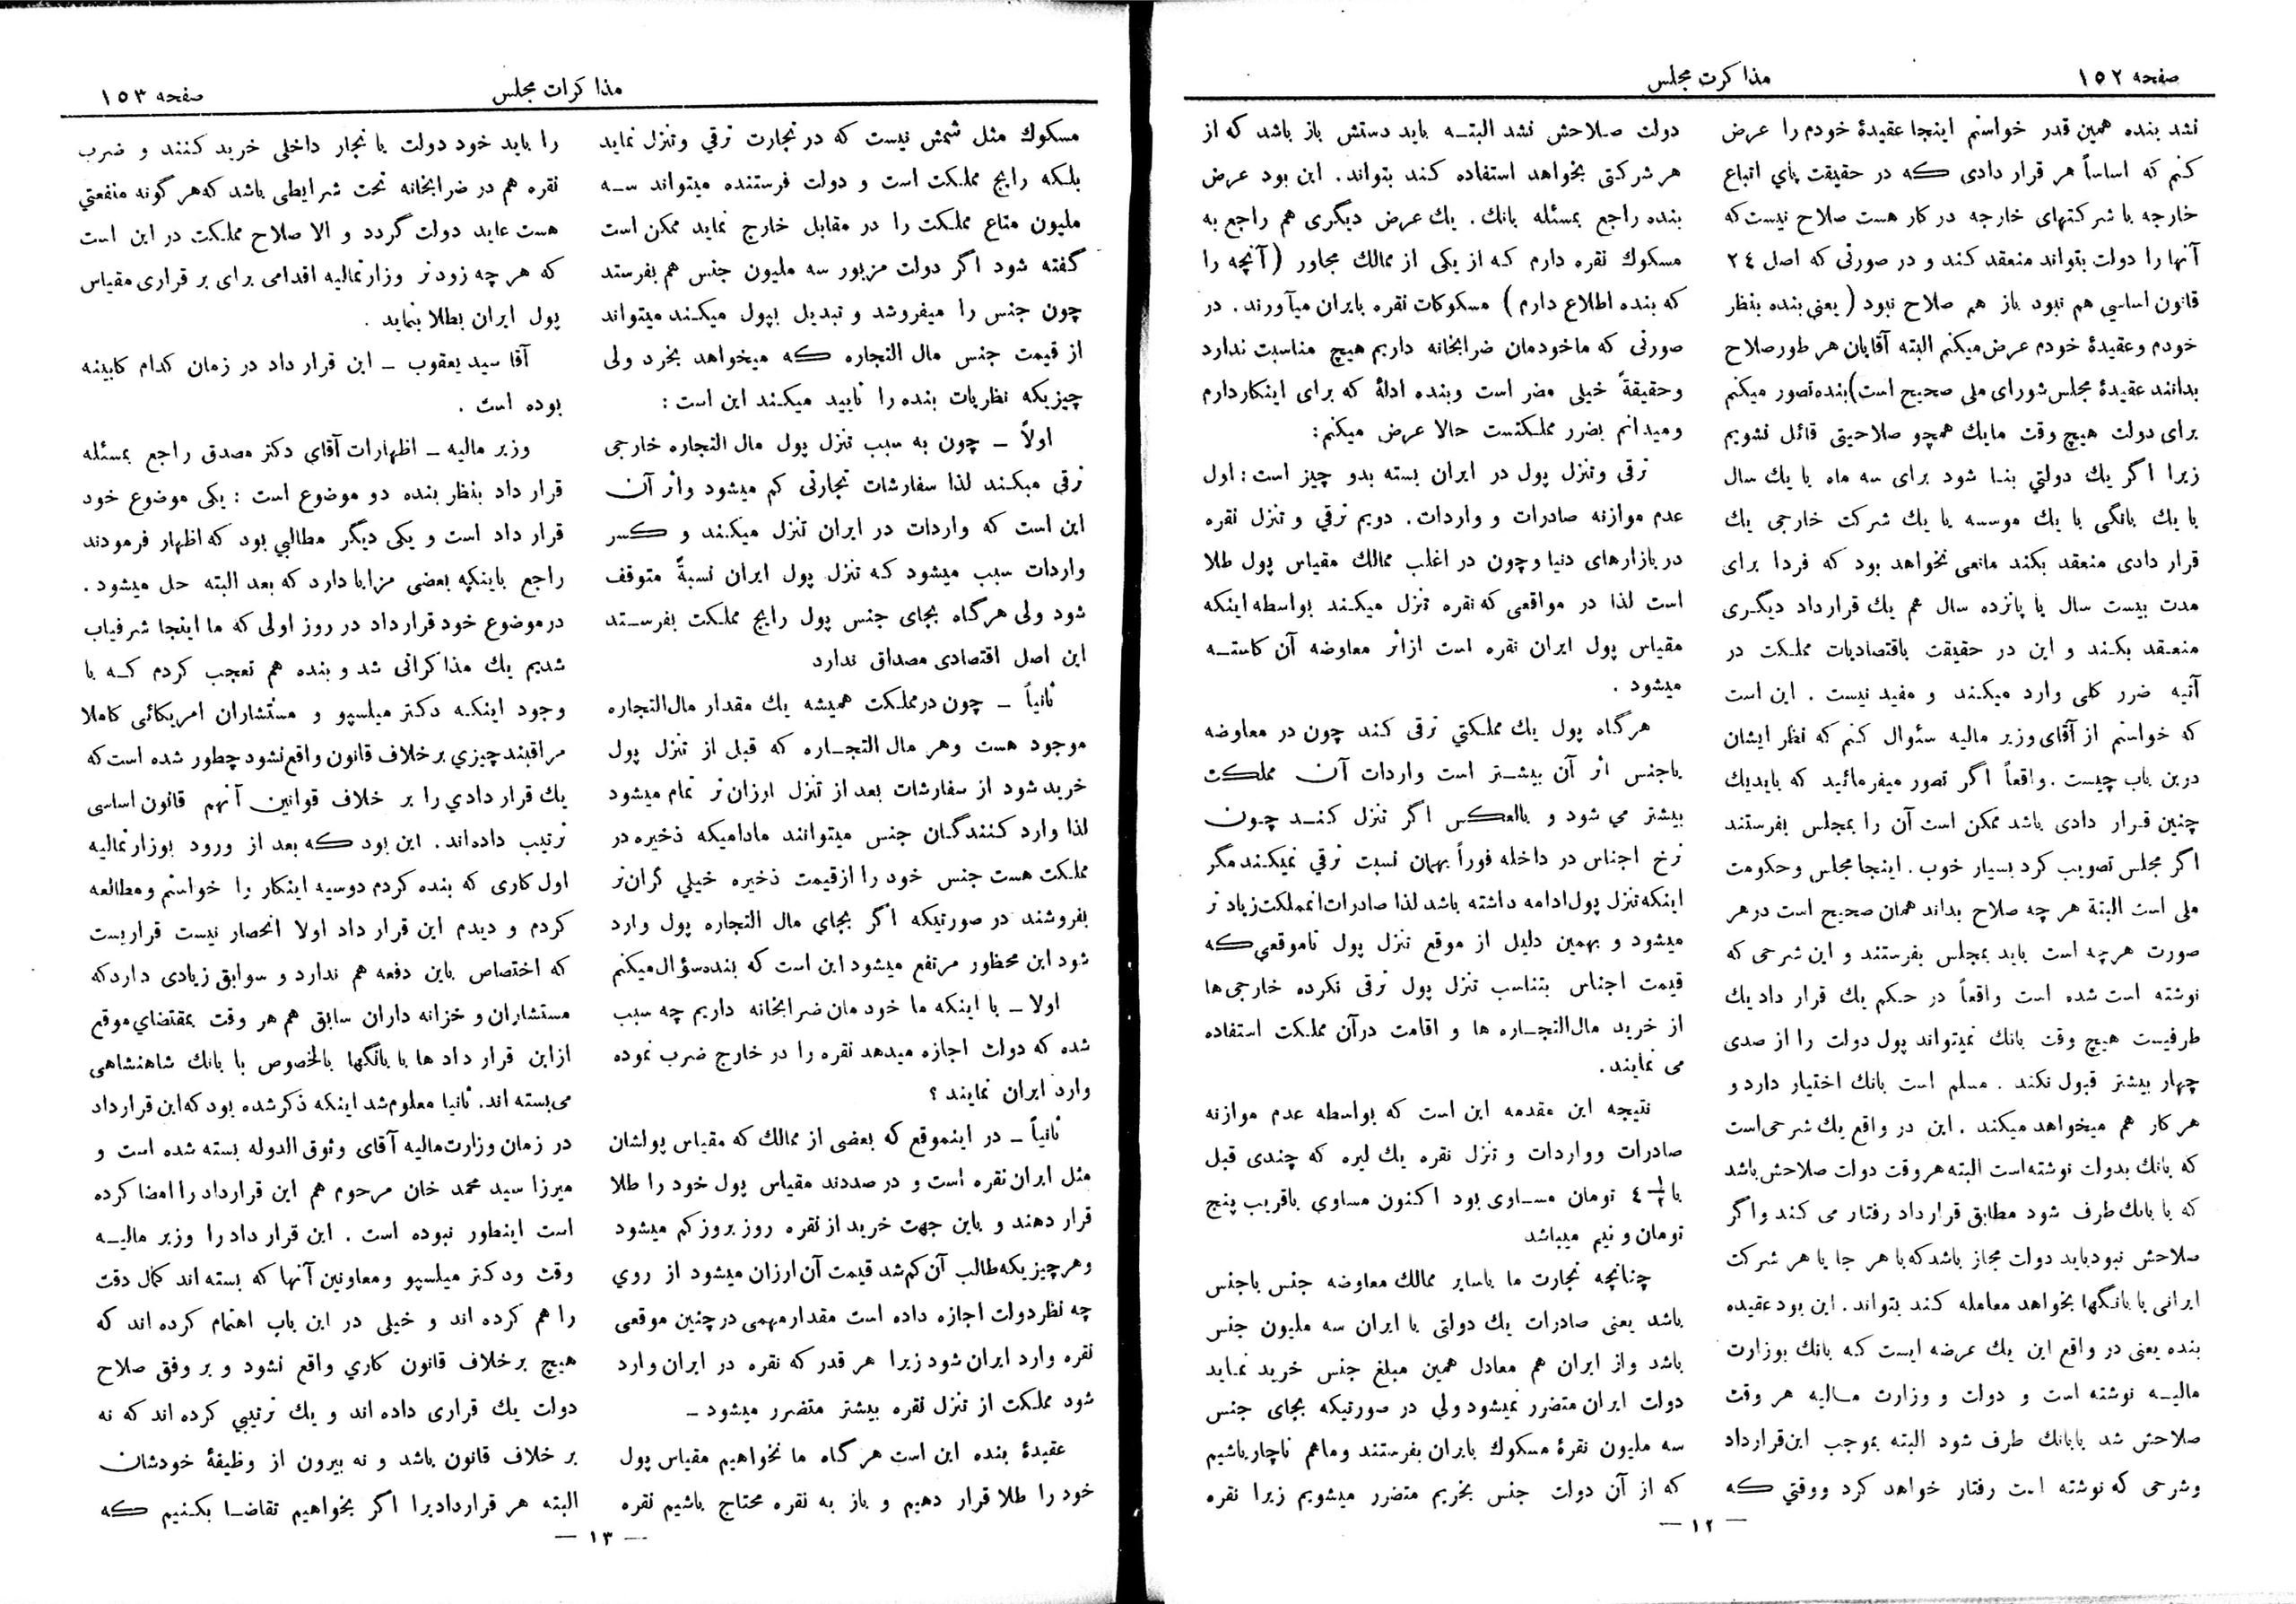 صفحه ۱۵۲
مذاکرت مجلس
نشد بنده همین قدر خواستم اینجا عقیدهٔ خودم را عرض
کنم که اساساً هر قرار دادی که در حقیقت پای اتباع
خارجه یا شرکتهای خارجه در کار هست صلاح نیست که
آنها را دولت بتواند منعقد کند و در صورتی که اصل ۲۴
قانون اساسی هم نبود باز هم صلاح نبود (یعنی بنده بنظر
خودم و عقیدهٔ خودم عرض میکنم البته آقایان هر طور صلاح
بدانند عقیدهٔ مجلس شورای ملی صحیح است) بنده تصور میکنم
برای دولت هیچ وقت ما یك همچو صلاحیتی قائل نشویم
زیرا اگر یك دولتی بنا شود برای سه ماه یا یك سال
با یك بانگی با یك موسسه یا یك شرکت خارجی یك
قرار دادی منعقد بکند مانعی نخواهد بود که فردا برای
مدت بیست سال یا پانزده سال هم یك قرارداد دیگری
منعقد بکند و این در حقیقت باقتصادیات مملکت در
آتیه ضرر کلی وارد میکند و مفید نیست . این است
که خواستم از آقای وزیر مالیه سئوال کنم که نظر ایشان
درین باب چیست . واقعاً اگر تصور میفرمائید که باید یك
چنین قرار دادی باشد ممکن است آن را بمجلس بفرستند
اگر مجلس تصویب کرد بسیار خوب . اینجا مجلس و حکومت
ملی است البتة هر چه صلاح بداند همان صحیح است در هر
صورت هرچه است باید بمجلس بفرستند و این شرحی که
نوشته است شده است واقعاً در حکم یك قرار داد یك
طرفیست هیچ وقت بانك نمیتواند پول دولت را از صدی
چهار بیشتر قبول نکند . مسلم است بانك اختیار دارد و
هر کار هم میخواهد میکند . این در واقع یك شرحی است
که بانك بدولت نوشته است البته هر وقت دولت صلاحش باشد
که با بانك طرف شود مطابق قرارداد رفتار می کند و اگر
صلاحش نبود باید دولت مجاز باشد که با هر جا یا هر شرکت
ایرانی یا بانگها بخواهد معامله کند بتواند . این بود عقیده
بنده یعنی در واقع این یك عرضه ایست که بانك بوزارت
مالیه نوشته است و دولت و وزارت مالیه هر وقت
صلاحش شد با بانك طرف شود البته بموجب این قرارداد
وشرحی که نوشته است رفتار خواهد کرد ووقتي که
دولت صلاحش نشد البته باید دستش باز باشد که از
هر شرکتی بخواهد استفاده کند بتواند . این بود عرض
بنده راجع بمسئله بانك . یك عرض دیگری هم راجع به
مسکوك نقره دارم که از یکی از ممالك مجاور (آنچه را
که بنده اطلاع دارم) مسکوکات نقره بایران میآورند . در
صورتی که ما خودمان ضرابخانه داریم هیچ مناسبت ندارد
و حقیقةً خیلی مضر است وبنده ادلهٔ که برای اینکار دارم
ومیدانم بضرر مملکتست حالا عرض میکنم :
ترقی وتنزل پول در ایران بسته بدو چیز است : اول
عدم موازنه صادرات و واردات . دویم ترقي و تنزل نقره
در بازارهای دنیا و چون در اغلب ممالك مقیاس پول طلا
است لذا در مواقعی که نقره تنزل میکند بواسطه اینکه
مقیاس پول ایران نقره است از اثر معاوضه آن کاسته
میشود .
هرگاه پول یك مملکتي ترقی کند چون در معاوضه
باجنس اثر آن بیشتر است واردات آن مملکت
بیشتر می شود و بالعکس اگر تنزل کند چون
نرخ اجناس در داخله فوراً بهمان نسبت ترقي نمیکند مگر
اینکه تنزل پول ادامه داشته باشد لذا صادرات انمملکت زیاد تر
میشود و بهمین دلیل از موقع تنزل پول تا موقعي که
قیمت اجناس بتناسب تنزل پول ترقی نکرده خارجی ها
از خرید مال التجاره ها و اقامت در آن مملکت استفاده
می نمایند .
نتیجه این مقدمه این است که بواسطه عدم موازنه
صادرات وواردات و تنزل نقره یك لیره که چندی قبل
با ۴ ۱/۲ تومان مساوی بود اکنون مساوی باقریب پنج
تومان و نیم میباشد
چنانچه تجارت ما باسایر ممالك معاوضه جنس باجنس
باشد یعنی صادرات یك دولتی با ایران سه ملیون جنس
باشد واز ایران هم معادل همین مبلغ جنس خرید نماید
دولت ایران متضرر نمیشود ولي در صورتیکه بجای جنس
سه ملیون نقرهٔ مسکوك بایران بفرستند و ماهم ناچار باشیم
که از آن دولت جنس بخریم متضرر میشویم زیرا نقره
— ۱۲ —
مذاکرات مجلس
صفحه ۱۵۳
مسکوك مثل شمش نیست که در تجارت ترقي وتنزل نماید
بلکه رایج مملکت است و دولت فرستنده میتواند سه
ملیون متاع مملکت را در مقابل خارج نماید ممکن است
گفته شود اگر دولت مزبور سه ملیون جنس هم بفرستد
چون جنس را میفروشد و تبدیل بپول میکند میتواند
از قیمت جنس مال التجاره که میخواهد بخرد ولی
چیزیکه نظریات بنده را تایید میکند این است :
اولاً – چون به سبب تنزل پول مال التجاره خارجی
ترقی میکند لذا سفارشات تجارتی کم میشود واثر آن
این است که واردات در ایران تنزل میکند و کسر
واردات سبب میشود که تنزل پول ایران نسبةً متوقف
شود ولی هرگاه بجای جنس پول رایج مملکت بفرستد
این اصل اقتصادی مصداق ندارد
ثانیاً – چون در مملکت همیشه یك مقدار مال التجاره
موجود هست وهر مال التجاره که قبل از تنزل پول
خرید شود از سفارشات بعد از تنزل ارزان تر تمام میشود
لذا وارد کنندگان جنس میتوانند مادامیکه ذخیره در
مملکت هست جنس خود را ازقیمت ذخیره خیلي گران تر
بفروشند در صورتیکه اگر بجای مال التجاره پول وارد
شود این محظور مرتفع میشود این است که بنده سؤال میکنم
اولا – با اینکه ما خود مان ضرابخانه داریم چه سبب
شده که دولت اجازه میدهد نقره را در خارج ضرب نموده
وارد ایران نمایند ؟
ثانیاً – در اینموقع که بعضی از ممالك که مقیاس پولشان
مثل ایران نقره است و در صددند مقیاس پول خود را طلا
قرار دهند و باین جهت خرید از نقره روز بروز کم میشود
وهر چیزیکه طالب آن کم شد قیمت آن ارزان میشود از روي
چه نظر دولت اجازه داده است مقدار مهمی در چنین موقعی
نقره وارد ایران شود زیرا هر قدر که نقره در ایران وارد
شود مملکت از تنزل نقره بیشتر متضرر میشود –
عقیدهٔ بنده این است هر گاه ما نخواهیم مقیاس پول
خود را طلا قرار دهیم و باز به نقره محتاج باشیم نقره
را باید خود دولت یا تجار داخلی خرید کنند و ضرب
نقره هم در ضرابخانه تحت شرایطی باشد که هر گونه منفعتي
هست عاید دولت گردد و الا صلاح مملکت در این است
که هر چه زود تر وزارتمالیه اقدامی برای بر قراری مقیاس
پول ایران بطلا بنماید .
آقا سید یعقوب – این قرار داد در زمان کدام کابینه
بوده است .
وزیر مالیه – اظهارات آقای دکتر مصدق راجع بمسئله
قرار داد بنظر بنده دو موضوع است : یکی موضوع خود
قرار داد است و یکی دیگر مطالبي بود که اظهار فرمودند
راجع باینکه بعضی مزایا دارد که بعد البته حل میشود .
در موضوع خود قرارداد در روز اولی که ما اینجا شرفیاب
شدیم یك مذاکراتی شد و بنده هم تعجب کردم که با
وجود اینکه دکتر میلسپو و مستشاران امریکائی کاملا
مراقبند چیزي بر خلاف قانون واقع نشود چطور شده است که
یك قرار دادي را بر خلاف قوانین آنهم قانون اساسی
ترتیب داده اند . این بود که بعد از ورود بوزارتمالیه
اول کاری که بنده کردم دوسیه اینکار را خواستم ومطالعه
کردم و دیدم این قرار داد اولا انحصار نیست قراریست
که اختصاص باین دفعه هم ندارد و سوابق زیادی دارد که
مستشاران و خزانه داران سابق هم هر وقت بمقتضاي موقع
ازاین قرار داد ها با بانگها بالخصوص با بانك شاهنشاهی
می بسته اند . ثانیا معلوم شد اینکه ذکر شده بود که این قرارداد
در زمان وزارت مالیه آقای وثوق الدوله بسته شده است و
میرزا سید محمد خان مرحوم هم این قرارداد را امضا کرده
است اینطور نبوده است . این قرار داد را وزیر مالیه
وقت ودکتر میلسپو ومعاونین آنها که بسته اند کمال دقت
را هم کرده اند و خیلی در این باب اهتمام کرده اند که
هیچ بر خلاف قانون کاري واقع نشود و بر وفق صلاح
دولت یك قراری داده اند و یك ترتیبي کرده اند که نه
بر خلاف قانون باشد و نه بیرون از وظیفهٔ خودشان
البته هر قراردادیرا اگر بخواهیم تقاضا بکنیم که
— ۱۳ —